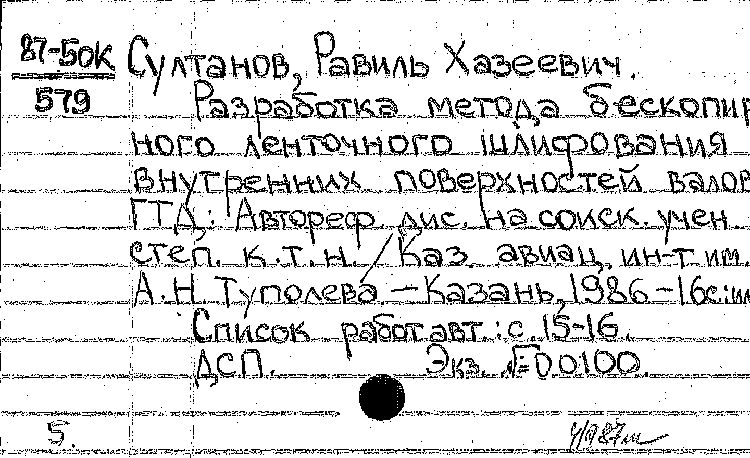 87-50К Султанов, Равиль Хазеевич.
579 Разработка метода бескопир
ного ленточного шлифования
внутренних поверхностей валов
ГТД: Автореф. дис. на соиск. учен.
степ. к.т.н. / Каз. авиац. ин-т им.
А.Н. Туполева. — Казань, 1986 - 16с.: ил
Список работ авт.: с. 15-16.
ДСП. Экз. №00100.
5.